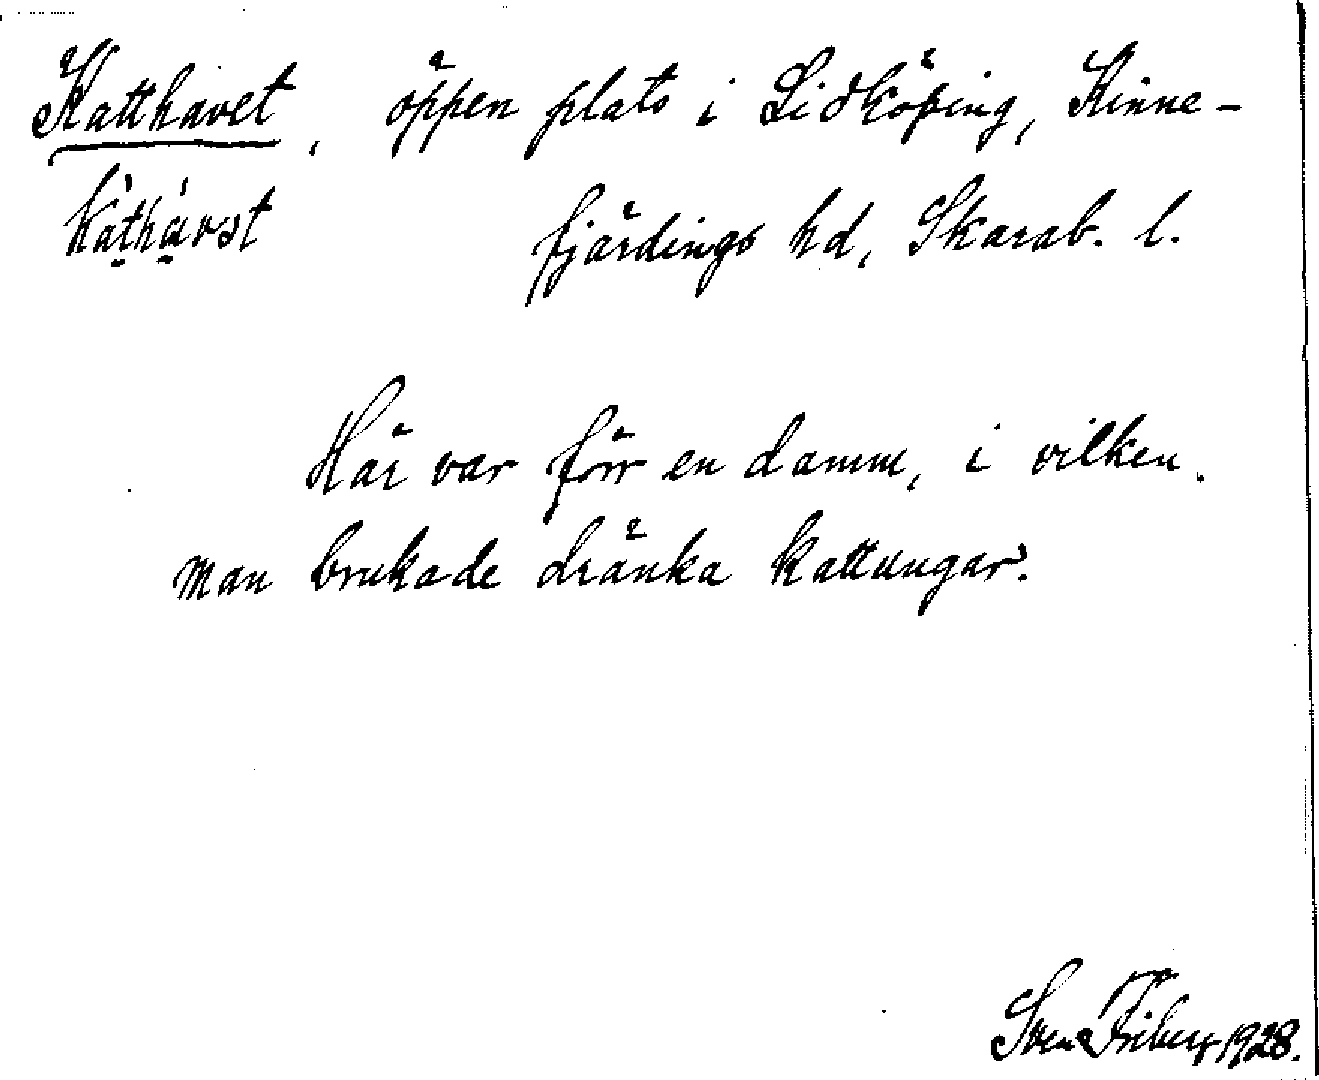 Katthavet, öppen plats i Lidköping, Kinne-
fjärdings hd, Skarab. l.
Här var förr en damm, i vilken
man brukade dränka kattungar.
Sven Friberg 1928.